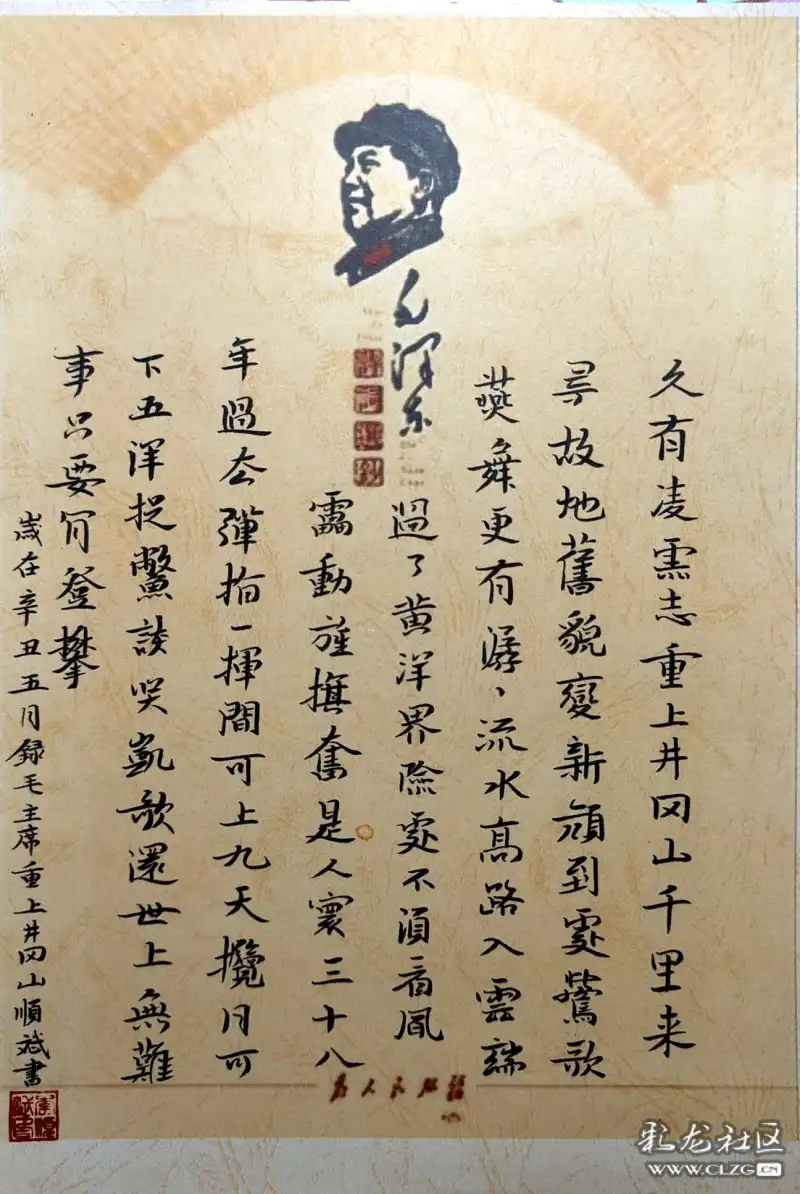 毛澤东
久有凌雲志重上井冈山千里来
尋故地舊貌變新顔到處鶯歌
燕舞更有潺、流水高路入雲端
過了黄洋界險處不須看風
靁動旌旗奮是人寰三十八
年過去彈指一揮間可上九天攬月可
下五洋捉鱉談笑凱歌還世上無難
事只要肯登攀
歲在辛丑五月録毛主席重上井冈山順斌書
为人民服務
彩龙社区
WWW.CLZG.CN